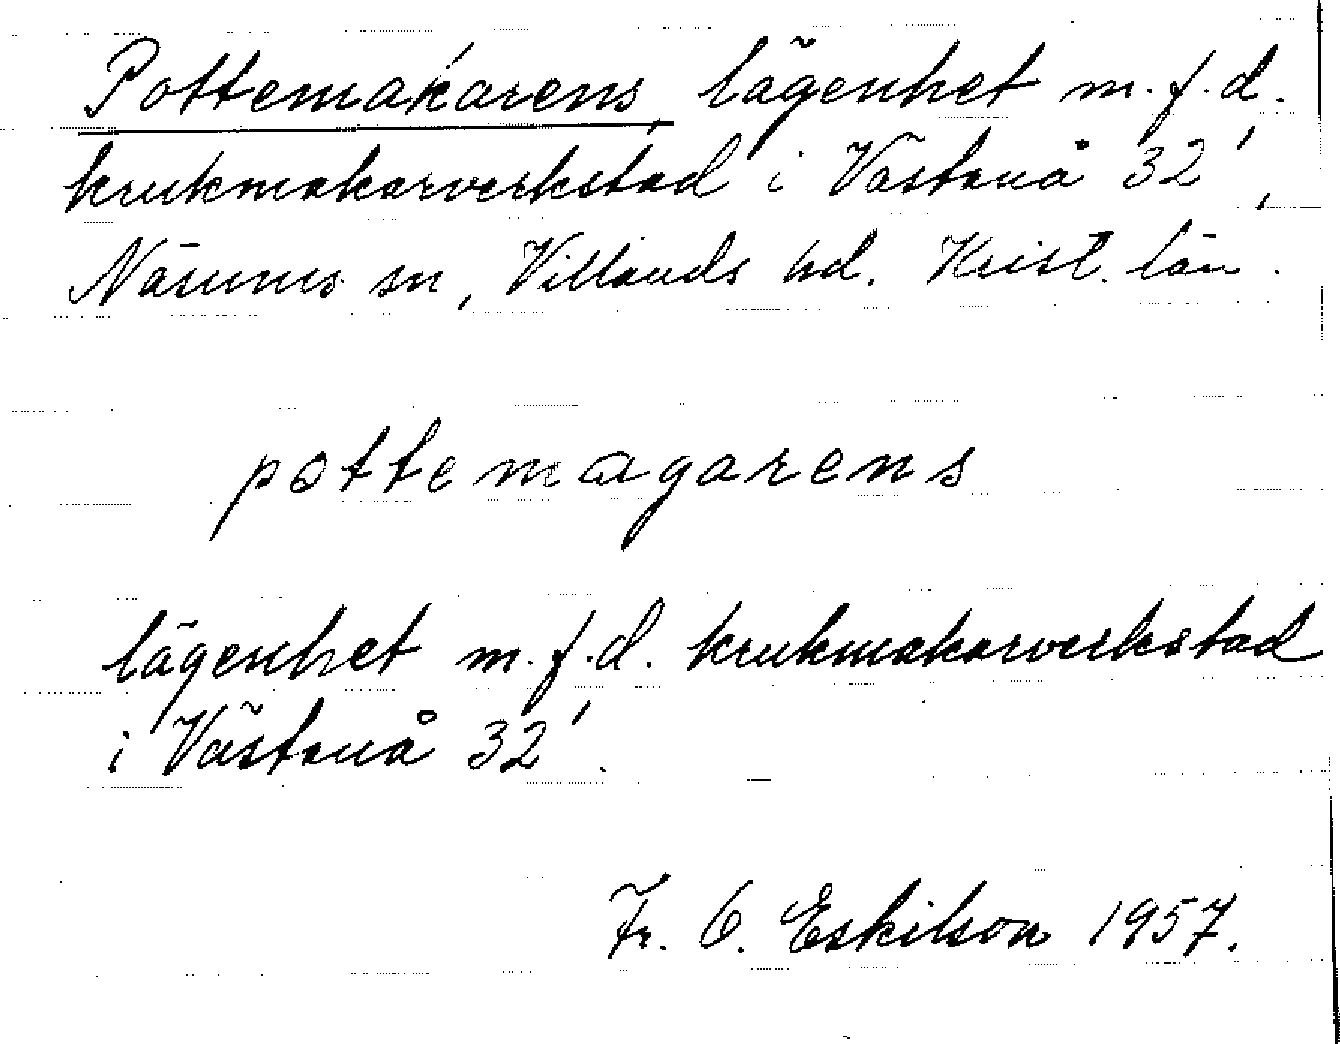 Pottemakarens, lägenhet m. f. d.
krukmakarverkstad i Västanå 32',
Näsums sn, Villands hd. Krist. län.
pottemagarens
lägenhet m. f. d. krukmakarverkstad
i Västanå 32'.
Fr. O. Eskilson 1957.